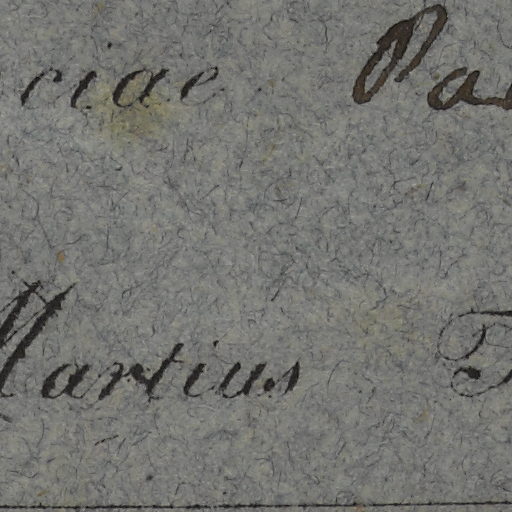 ciae Pa
Martius